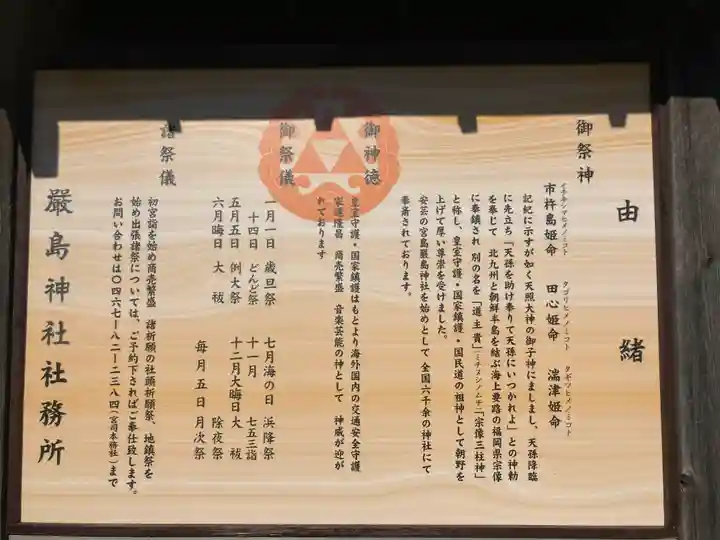 由緒
御祭神
イチキシマヒメノミコト タゴリヒメノミコト タギツヒメノミコト
市杵島姫命 田心姫命 湍津姫命
記紀に示すが如く天照大神の御子神にましまし、天孫降臨
に先立ち「天孫を助け奉りて天孫にいつかれよ」との神勅
を奉じて 北九州と朝鮮半島を結ぶ海上要路の福岡県宗像
に奉鎮され 別の名を「道主貴」(ミチヌシノムチ)「宗像三柱神」
と称し、皇室守護・国家鎮護・国民道の祖神として朝野を
上げて厚い尊崇を受けました。
安芸の宮島厳島神社を始めとして 全国六千余の神社にて
奉斎されております。
御神徳
皇室守護・国家鎮護はもとより海外国内の交通安全守護
家運隆昌 商売繁盛 音楽芸能の神として 神威が迎が
れております
御祭儀
一月一日 歳旦祭 七月海の日 浜降祭
十四日 どんど祭 十一月 七五三詣
五月五日 例大祭 十二月大晦日 大祓
六月晦日 大祓 除夜祭
毎月五日 月次祭
諸祭儀
初宮詣を始め商売繁盛 諸祈願の社頭祈願祭、地鎮祭を
始め出張諸祭については、ご予約下さればご奉仕致します。
お問い合わせは〇四六七ー八二ー二三八四(宮司本務社)まで
嚴島神社社務所